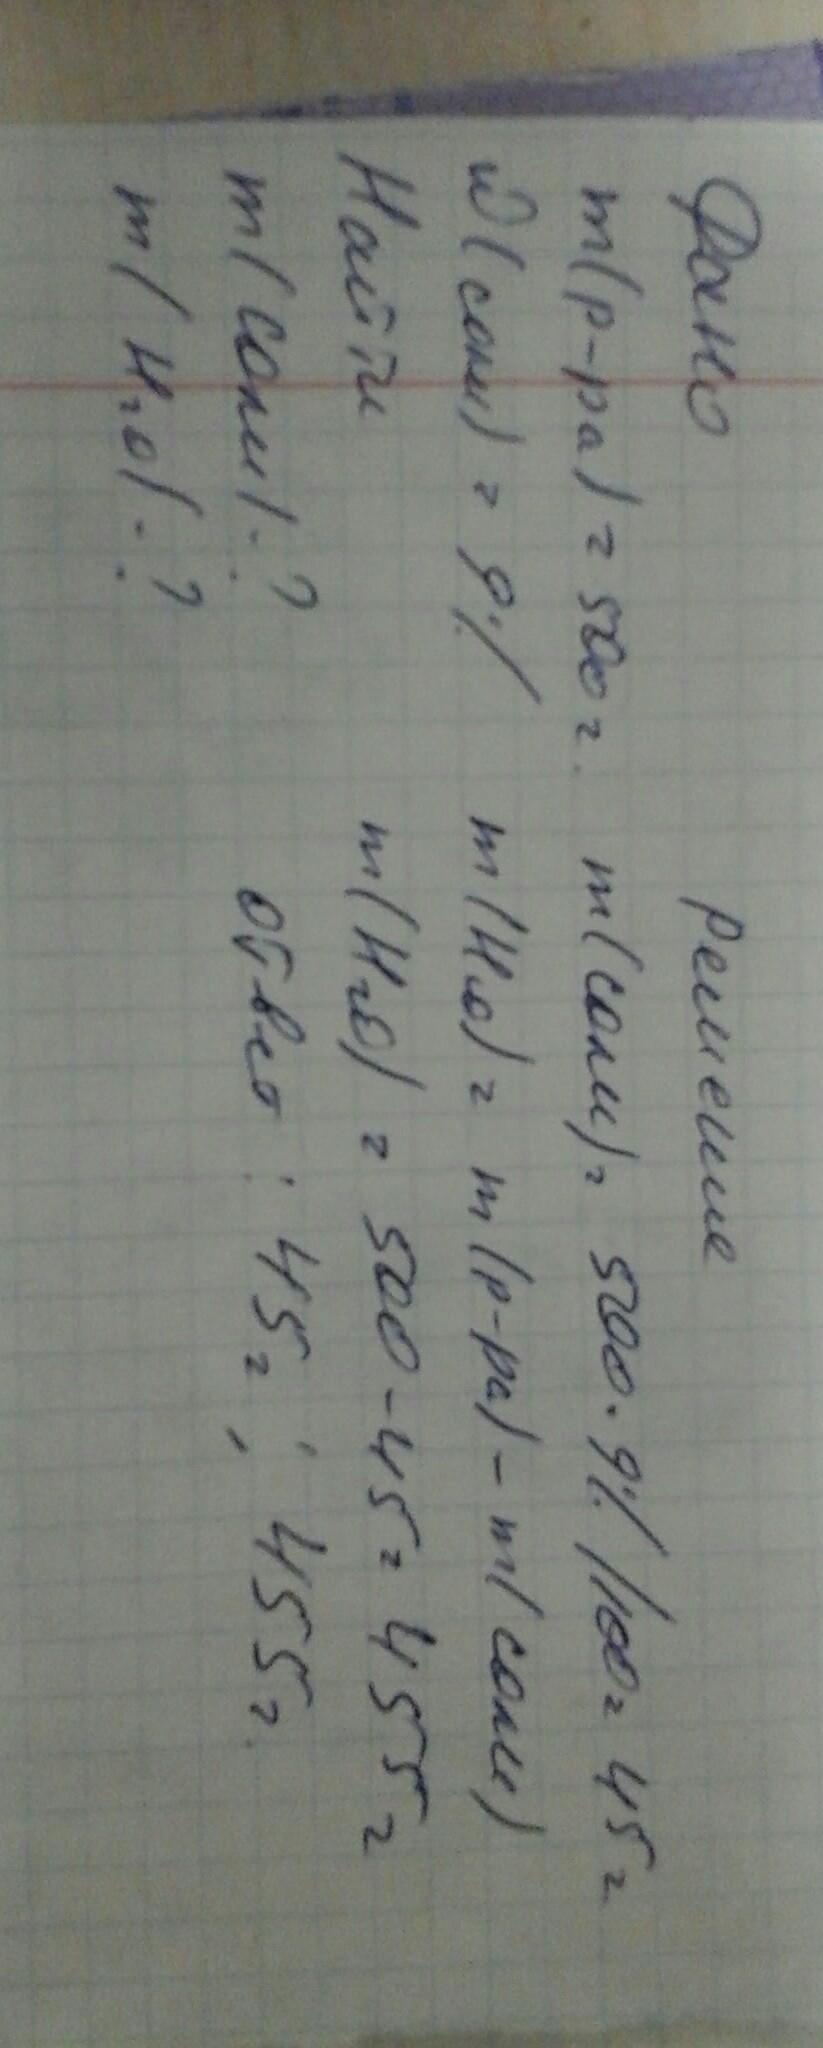 Дано
Решение
m(р-ра) = 500 г. m(соли) = 500 · 9% / 100 = 45 г
ω(соли) = 9% m(H2O) = m(р-ра) - m(соли)
Найти m(H2O) = 500 - 45 = 455 г
m(соли) - ? Ответ: 45 г; 455 г.
m(H2O) - ?